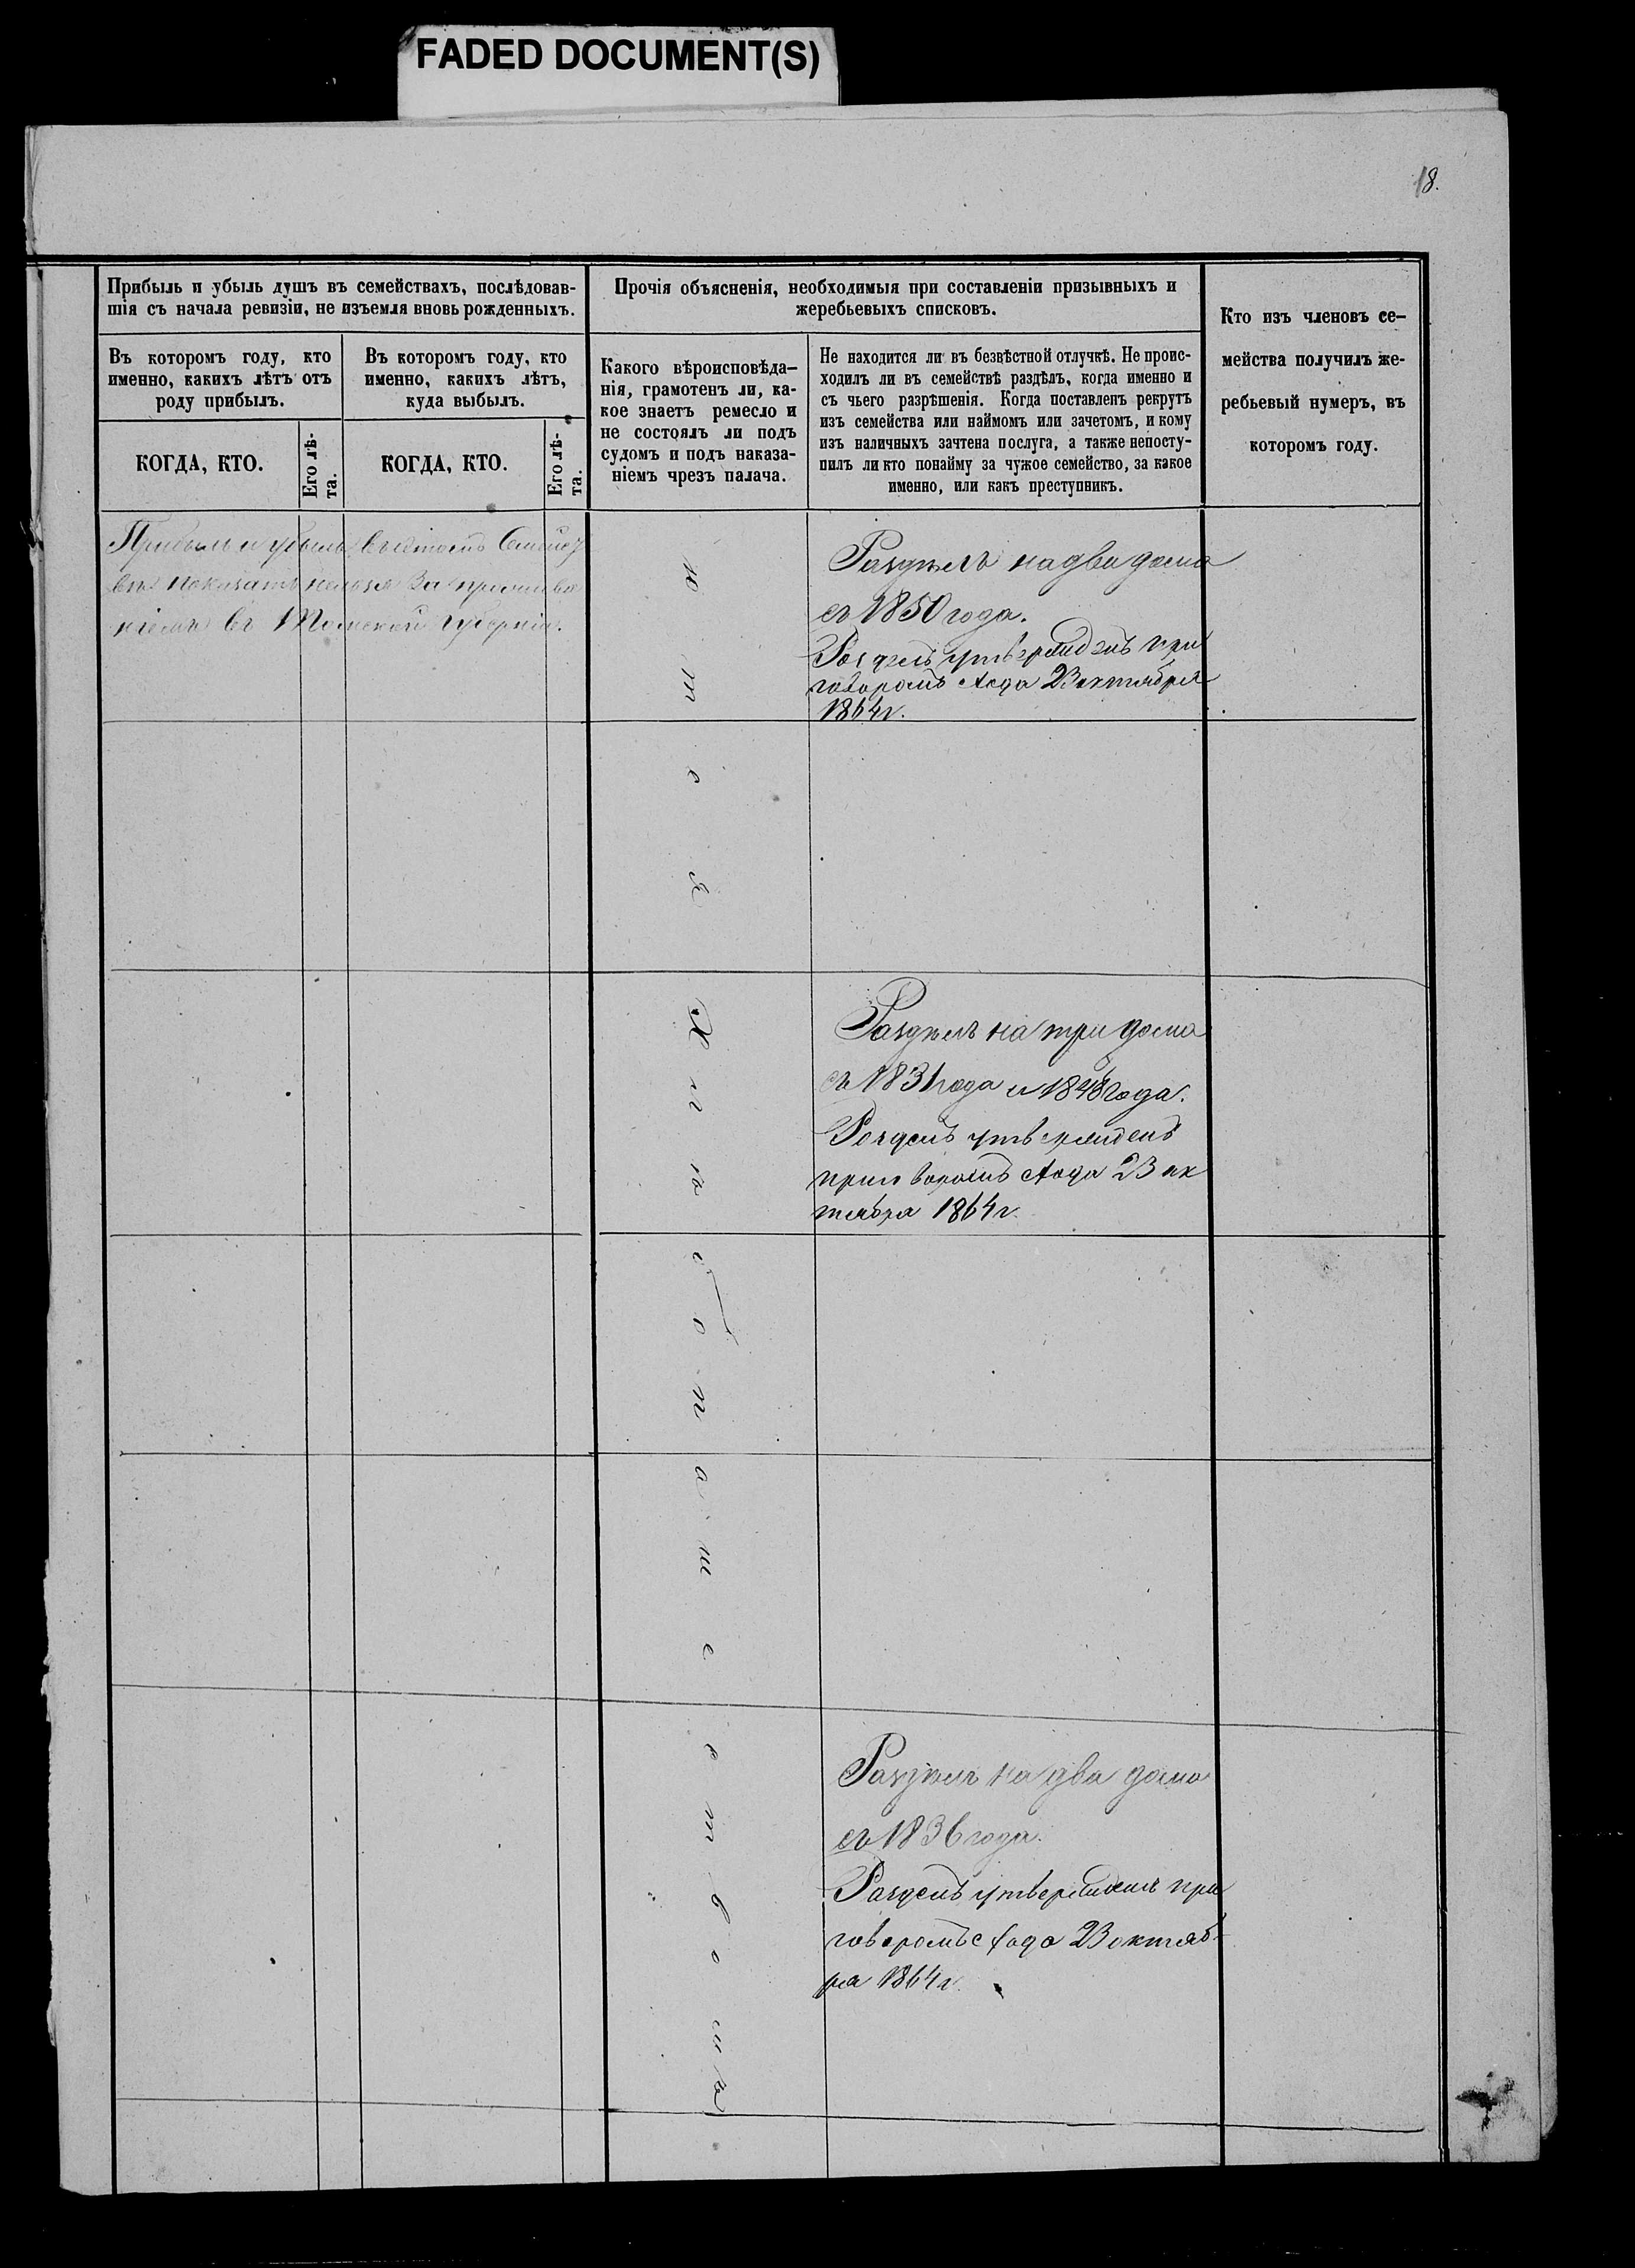 FADED DOCUMENT(S)
18.
Прибыль и убыль душъ въ семействахъ, послѣдовав-
шія съ начала ревизіи, не изъемля вновь рожденныхъ.
Въ которомъ году, кто
именно, какихъ лѣтъ отъ
роду прибылъ.
Въ которомъ году, кто
именно, какихъ лѣтъ,
куда выбылъ.
КОГДА, КТО.
Его лѣ-
та.
КОГДА, КТО.
Его лѣ-
та.
Прочія объясненія, необходимыя при составленіи призывныхъ и
жеребьевыхъ списковъ.
Какого вѣроисповѣда-
нія, грамотенъ ли, ка-
кое знаетъ ремесло и
не состоялъ ли подъ
судомъ и подъ наказа-
ніемъ чрезъ палача.
Не находится ли въ безвѣстной отлучкѣ. Не проис-
ходилъ ли въ семействѣ раздѣлъ, когда именно и
съ чьего разрѣшенія. Когда поставленъ рекрутъ
изъ семейства или наймомъ или зачетомъ, и кому
изъ наличныхъ зачтена послуга, а также непосту-
пилъ ли кто понайму за чужое семейство, за какое
именно, или какъ преступникъ.
Кто изъ членовъ се-
мейства получилъ же-
ребьевый нумеръ, въ
котором году.
Прибыль и убыль въ этомъ
показать нельзя за
въ Томской Губерніи.
Раздѣлъ на два дома
съ 1850 года.
Раздѣлъ утвержденъ при
говоромъ схода 23 октября
1864 г.
Раздѣлъ на три дома
съ 1831 года и 1848 года.
Раздѣлъ утвержденъ
приговоромъ схода 23 ок
тября 1864 г.
Раздѣлъ на два дома
съ 1836 года.
Раздѣлъ утвержденъ при
говоромъ схода 23 октяб
ря 1864 г.